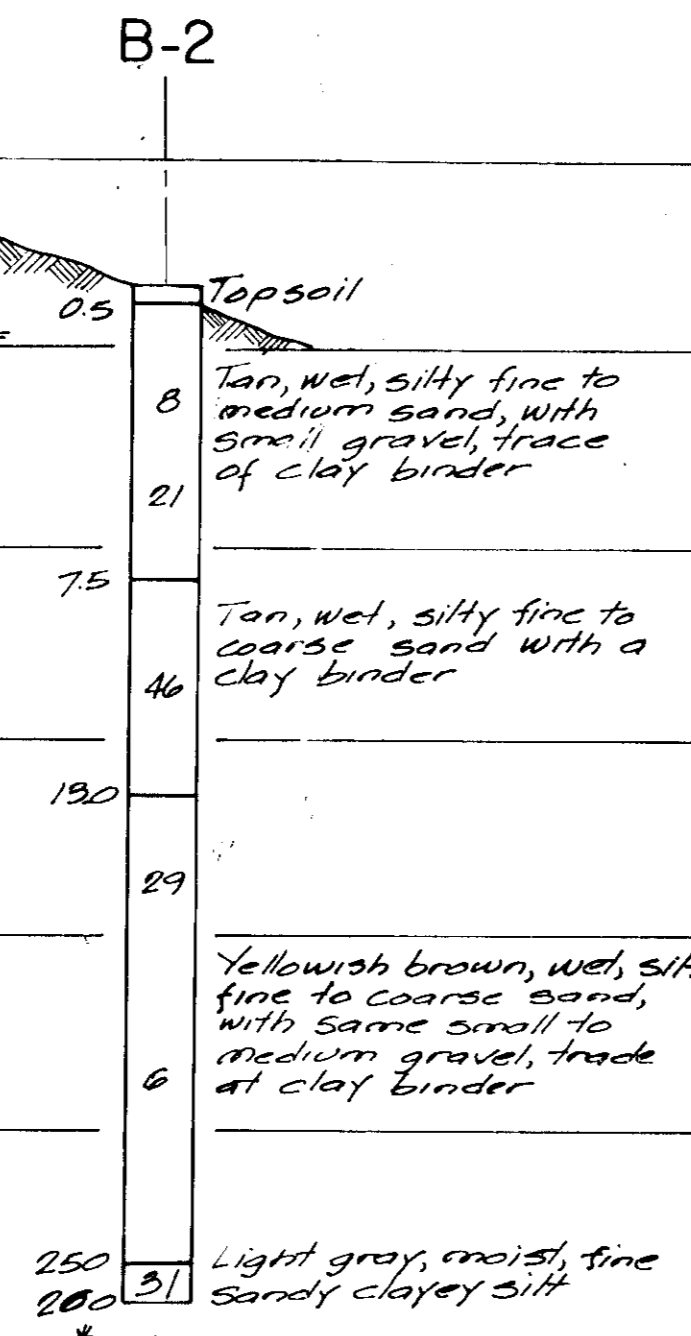 B-2
Topsoil
0.5
8
Tan, wet, silty fine to
medium sand, with
small gravel, trace
of clay binder
21
7.5
Tan, wet, silty fine to
coarse sand with a
clay binder
46
13.0
29
Yellowish brown, wet, silt
fine to coarse sand,
with same small to
medium gravel, trade
at clay binder
6
25.0
Light gray, moist, fine
sandy clayey silt
31
26.0
*